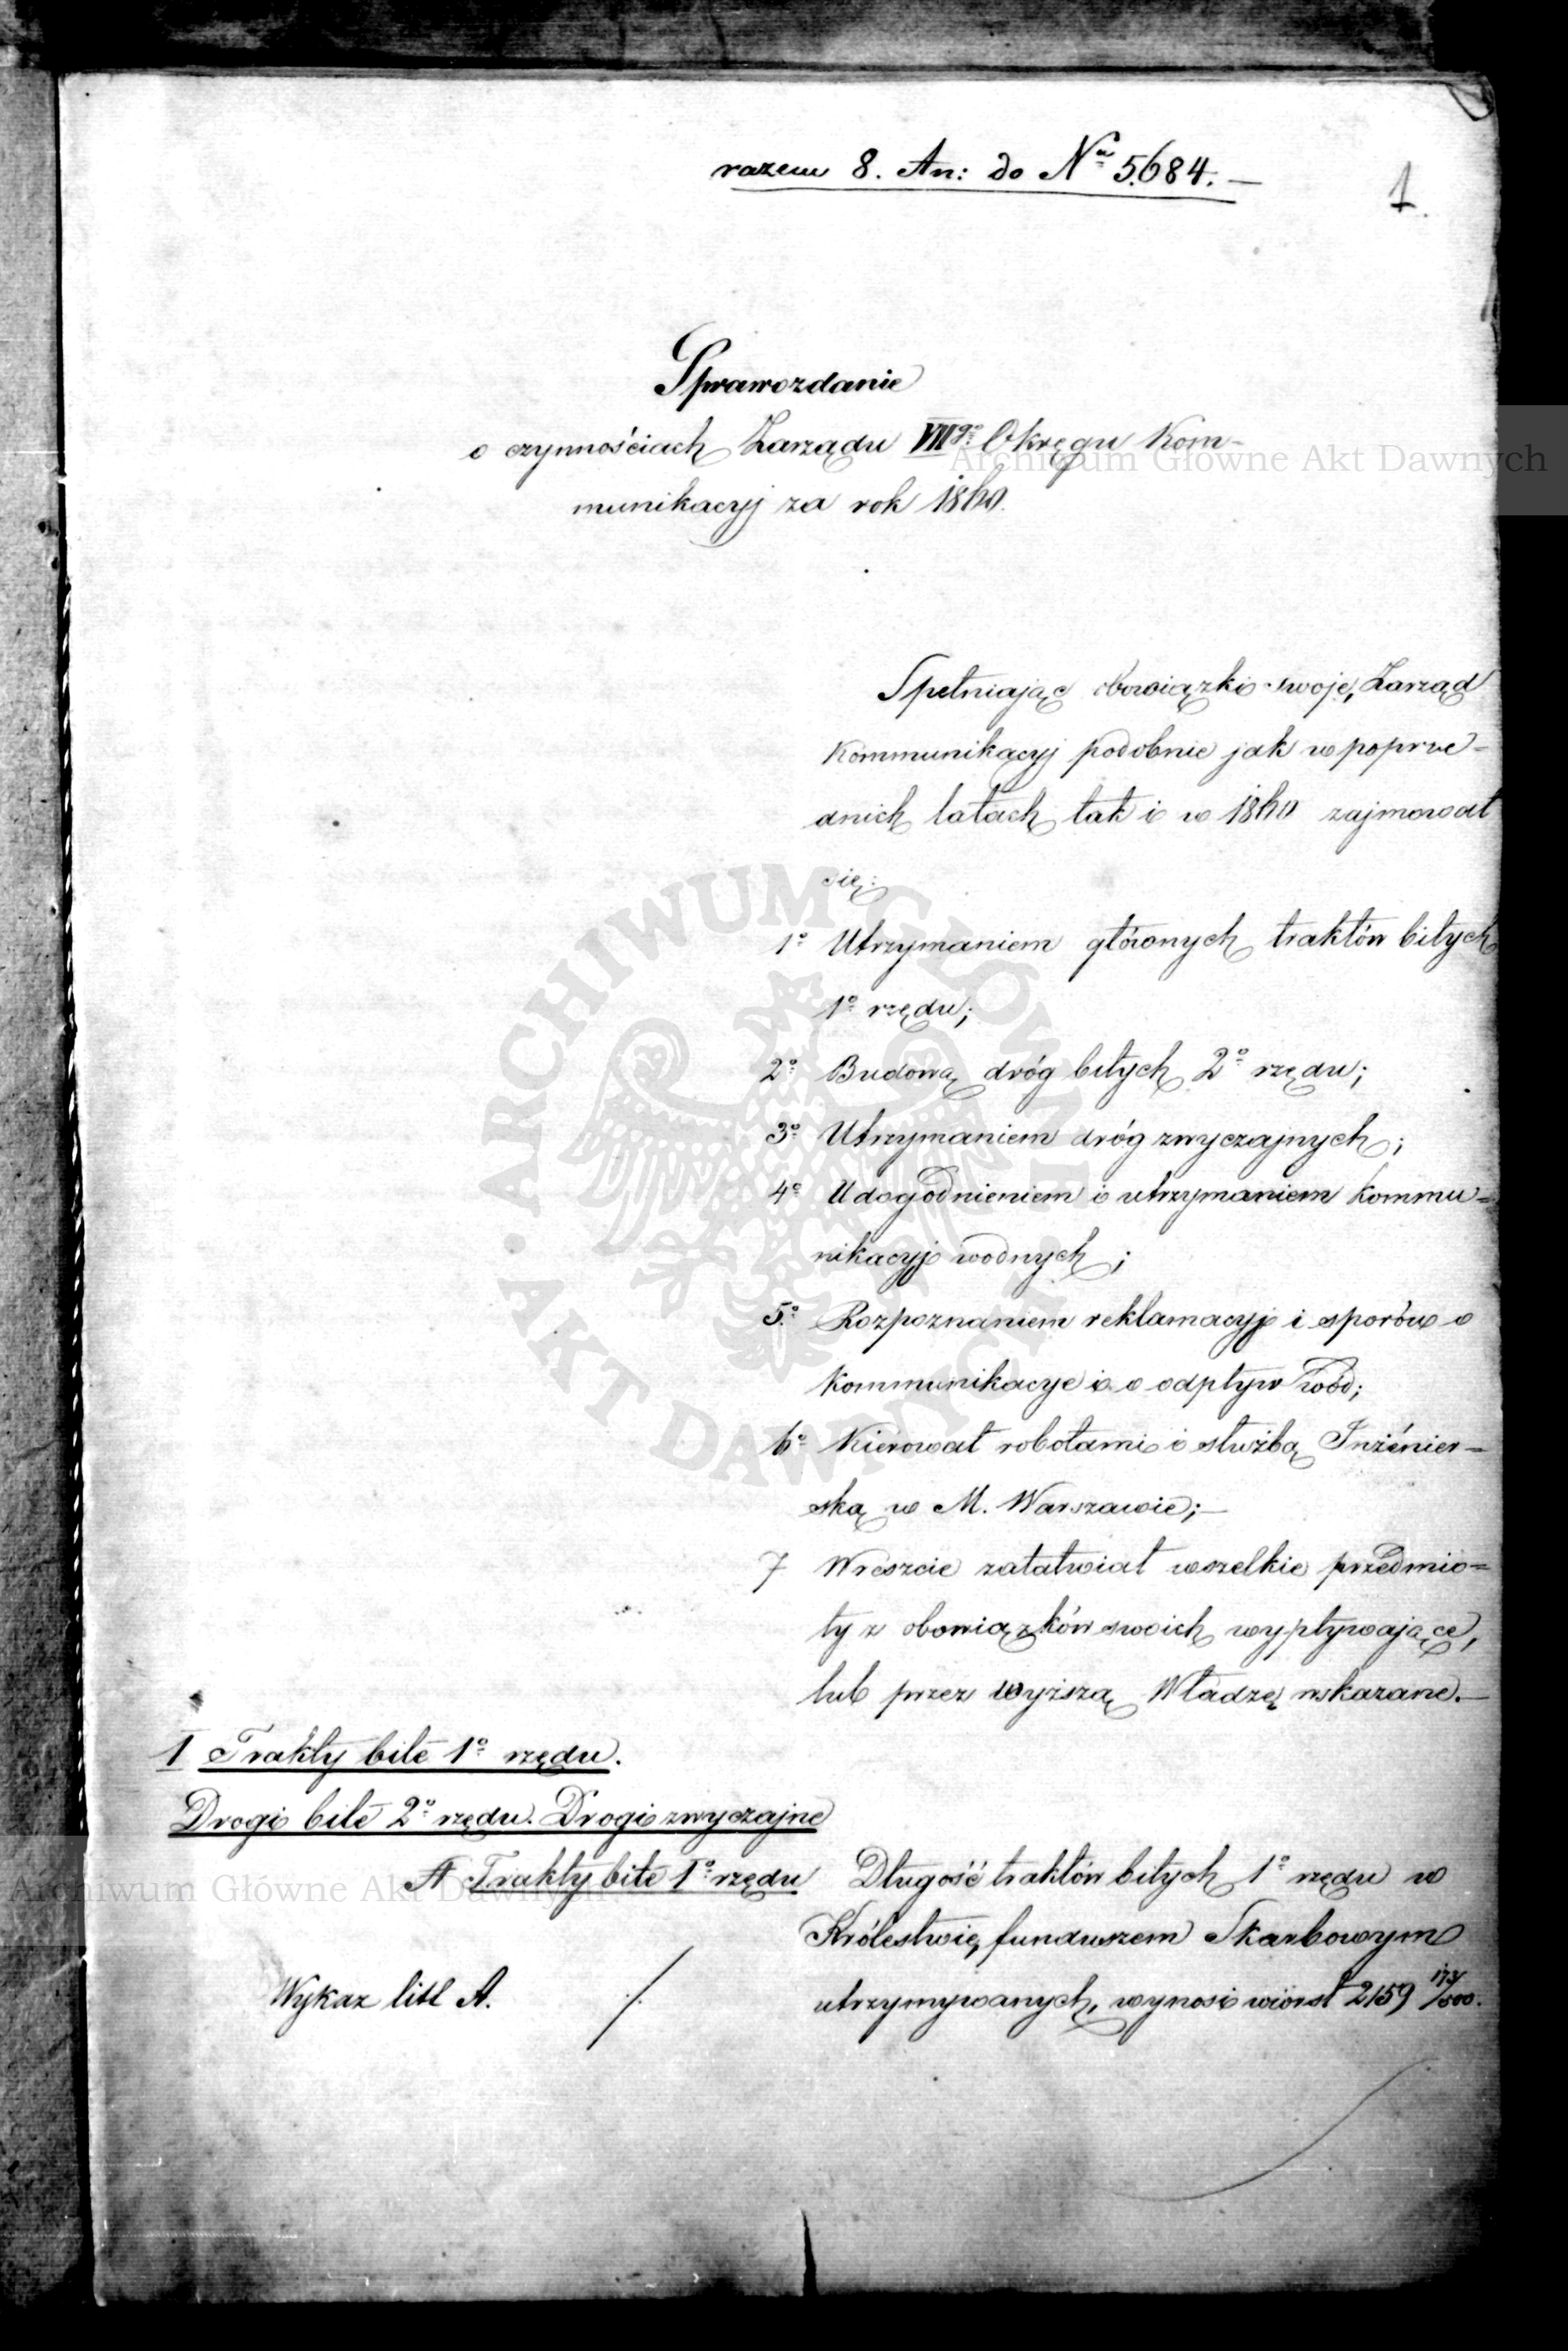 razem 8. An: do Nru 5684. —
1.
Sprawozdanie
o czynnościach Zarządu VIIgo Okręgu Kom-
Archiwum Główne Akt Dawnych
munikacyj za rok 1860.
Spełniając obowiązki swoje, Zarząd
Kommunikacyj podobnie jak w poprze-
dnich latach tak i w 1860 zajmował
się:
1o Utrzymaniem głównych traktów bitych
1o rzędu;
2o Budową dróg bitych 2o rzędu;
3o Utrzymaniem dróg zwyczajnych;
4o Udogodnieniem i utrzymaniem kommu=
nikacyj wodnych;
5o Rozpoznaniem reklamacyj i sporów o
kommunikacye i o odpływ wód;
6o Kierował robotami i służbą Inżénier=
ską w M. Warszawie; —
7 Wreszcie załatwiał wszelkie przedmio=
ty z obowiązków swoich wypływające,
lub przez wyższą Władzę wskazane. —
ARCHIWUM GŁÓWNE · AKT DAWNYCH ·
I Trakty bite 1o rzędu.
Drogi bite 2o rzędu. Drogi zwyczajne
A Trakty bite 1o rzędu
Archiwum Główne Akt Dawnych
Długość traktów bitych 1o rzędu w
Królestwie, funduszem Skarbowym
Wykaz litt A. ./.
utrzymywanych, wynosi wiorst 2159 173/500.